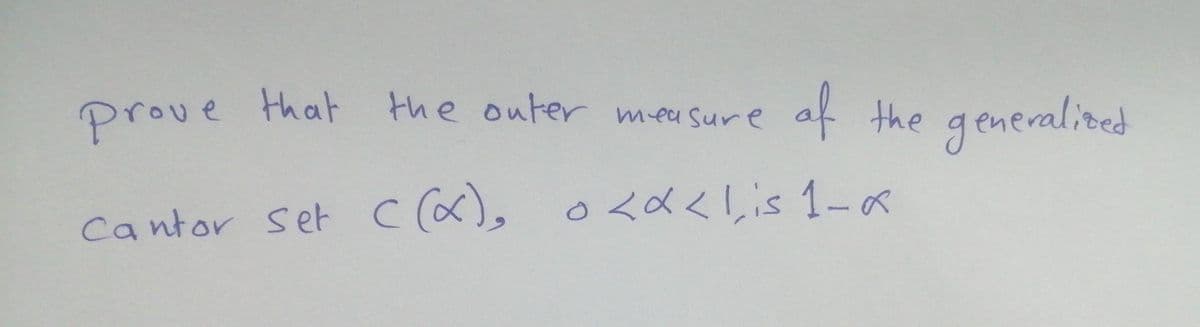 prove that the outer measure of the generalized
Cantor set C (α), 0 < α < 1, is 1-α